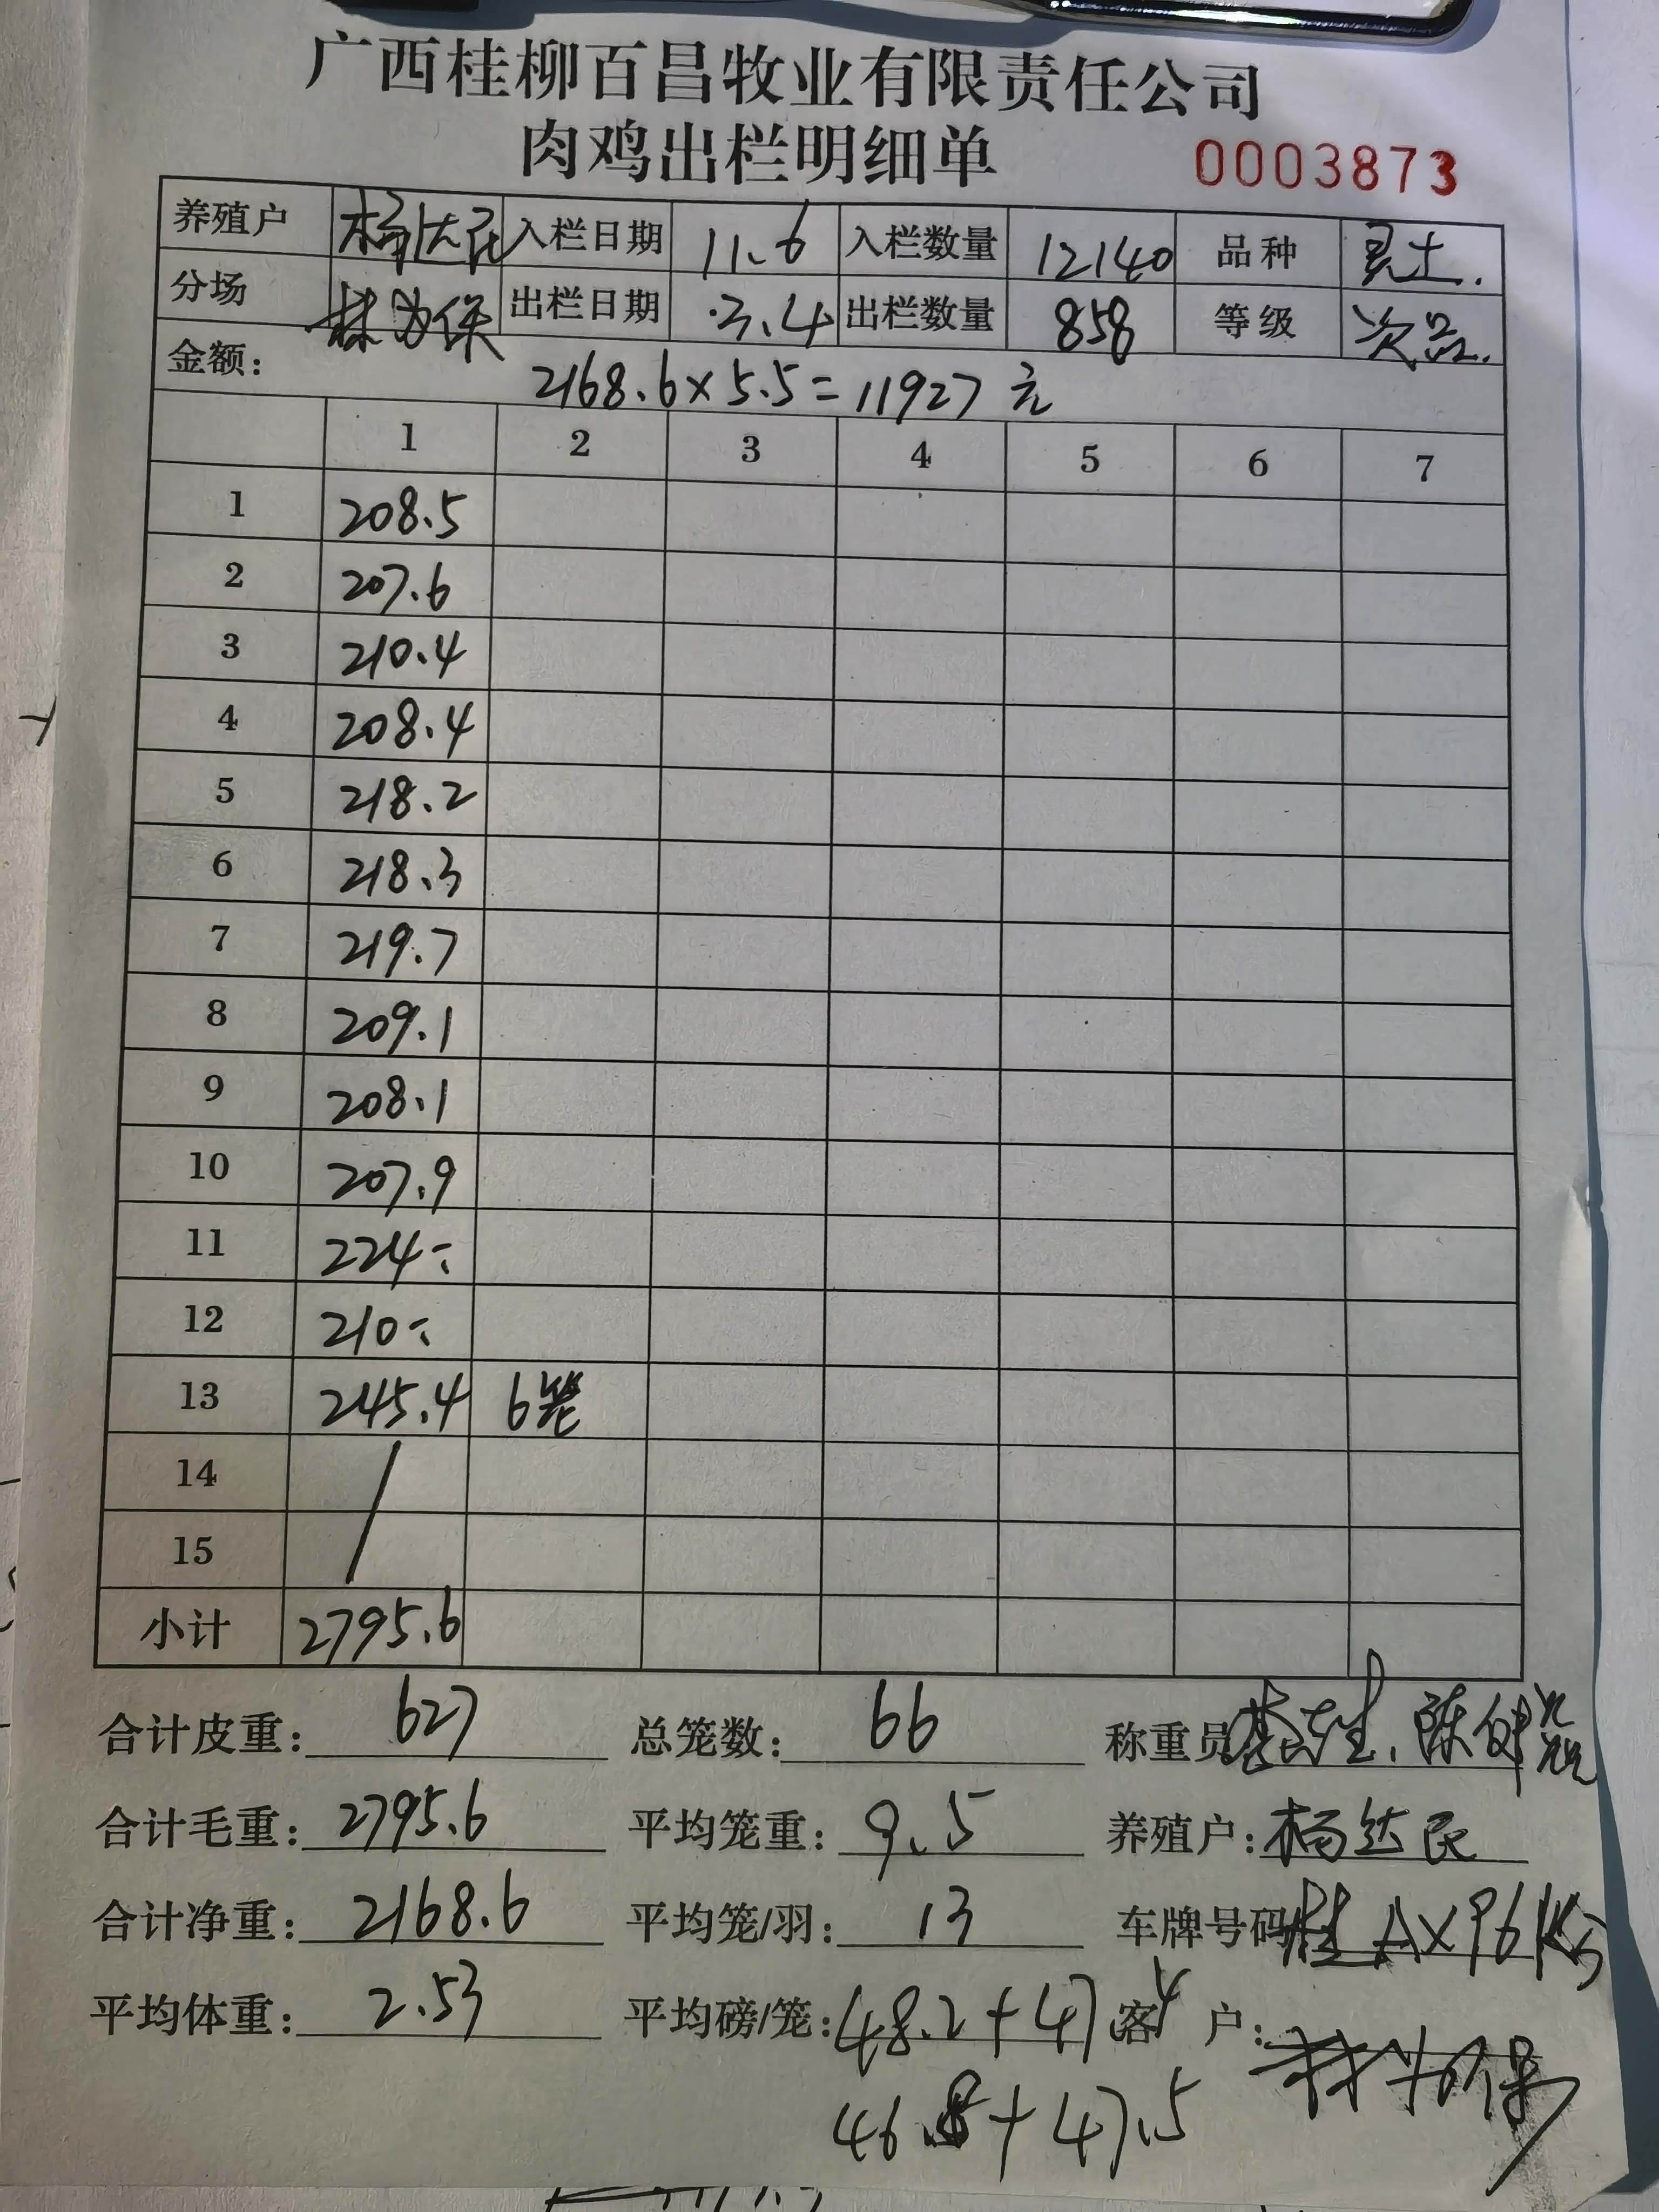 广西桂柳百昌牧业有限责任公司
肉鸡出栏明细单 0003873
养殖户 杨达民 入栏日期 11.6 入栏数量 12140 品种 灵土.
分场 林为保 出栏日期 3.4 出栏数量 858 等级 次品.
金额: 2168.6×5.5=11927元
1 2 3 4 5 6 7
1 208.5
2 207.6
3 210.4
4 208.4
5 218.2
6 218.3
7 219.7
8 209.1
9 208.1
10 207.9
11 224
12 210
13 245.4 6笼
14
15
小计 2795.6
合计皮重: 627 总笼数: 66 称重员
合计毛重: 2795.6 平均笼重: 9.5 养殖户: 杨达民
合计净重: 2168.6 平均笼/羽: 13 车牌号码 桂AX96
平均体重: 2.53 平均磅/笼: 48.2+47.4 客户: 林为保
46.8+47.5